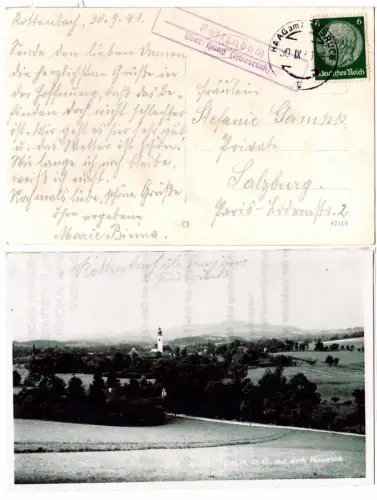 Rottenbach, 30.9.41.
Sende den lieben Damen
die herzlichsten Grüße in
der Hoffnung, daß das Be-
finden doch nicht schlechter
ist. Mir geht es hier sehr gut
u. das Wetter ist schön.
Wie lange ich noch bleibe,
weiß ich nicht.
Nochmals liebe, schöne Grüße
Ihre ergebene
Marie Binna.
Rottenbach
über Haag (Hausruck)
HAAG am
6 6
Deutsches Reich
Fräulein
Stefanie
Private
Salzburg.
Paris-Lodronstr. 2
Rottenbach
mit dem Hausruck